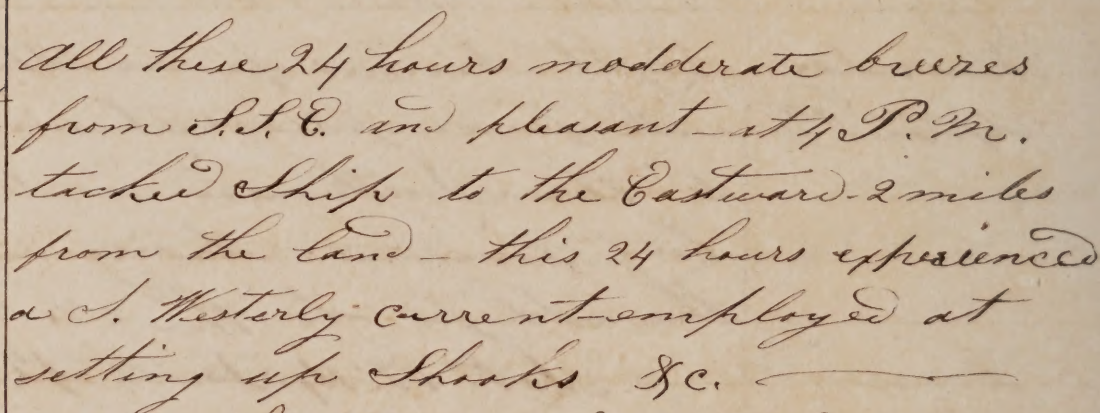 All these 24 hours modderate breezes
from S.S.E. and pleasant - at 4 P.M.
tacked Ship to the Eastward - 2 miles
from the land - this 24 hours experienced
a S. Westerly current - employed at
setting up Shooks &c.